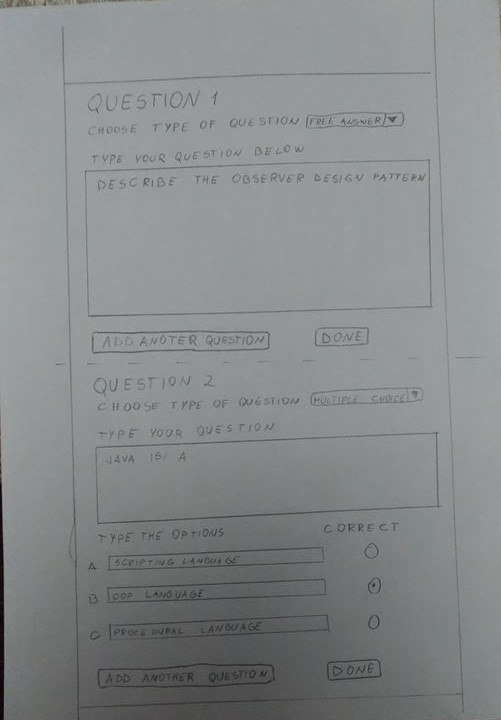 QUESTION 1
CHOOSE TYPE OF QUESTION FREE ANSWER
TYPE YOUR QUESTION BELOW
DESCRIBE THE OBSERVER DESIGN PATTERN
ADD ANOTER QUESTION DONE
QUESTION 2
CHOOSE TYPE OF QUESTION MULTIPLE CHOICE
TYPE YOUR QUESTION
JAVA IS: A
TYPE THE OPTIONS CORRECT
A SCRIPTING LANGUAGE
B OOP LANGUAGE
C PROCEDURAL LANGUAGE
ADD ANOTHER QUESTION DONE